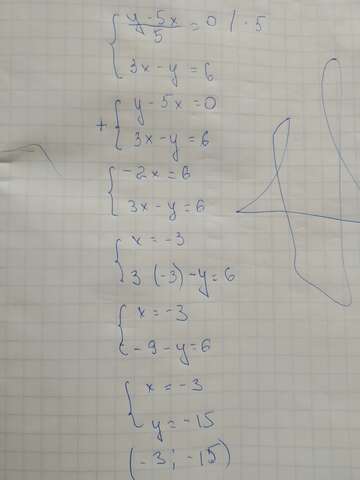 (y - 5x)/5 = 0 / · 5
3x - y = 6
+ y - 5x = 0
3x - y = 6
-2x = 6
3x - y = 6
x = -3
3 (-3) - y = 6
x = -3
-9 - y = 6
x = -3
y = -15
(-3; -15)